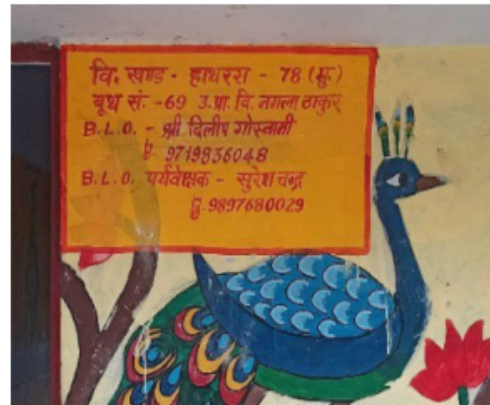 वि. खण्ड - हाथरस - 78 (मु.)
बूथ सं. -69 उ.प्रा. वि. नगला ठाकुर
B.L.O. - श्री दिलीप गोस्वामी
9719836048
B.L.O. पर्यवेक्षक - सुरेश चन्द्र
-9897680029